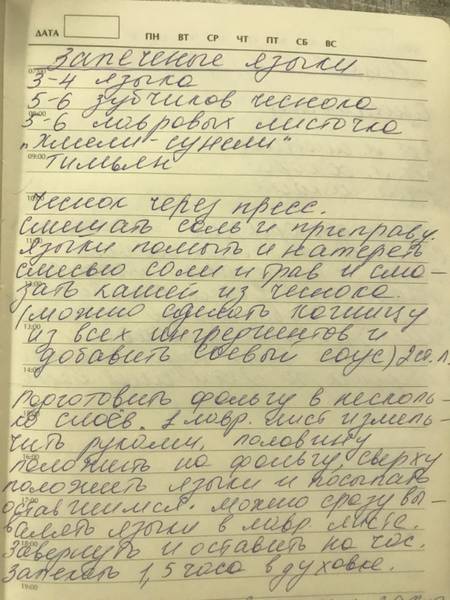 ДАТА ПН ВТ СР ЧТ ПТ СБ ВС
Запеченые языки
3-4 языка
5-6 зубчиков чеснока
08:00
5-6 лавровых листочка
„Хмели-сунели"
09:00 Тимьян
Чеснок через пресс.
Смешать соль и приправу.
языки помыть и натереть
смесью соли и трав и сма-
зать кашей из чеснока.
(можно сделать кашицу
13:00
из всех ингредиентов и
добавить соевый соус) 2 ст. л.
14:00
Подготовить фольгу в несколь-
ко слоёв. 1 лавр. лист измель-
чить руками, половину
16:00
положить на фольгу, сверху
положить языки и посыпать
17:00
оставшимся. можно сразу вы-
валять языки в лавр. листе.
18:00
Завернуть и оставить на час.
Запекать 1,5 часа в духовке.
19:00